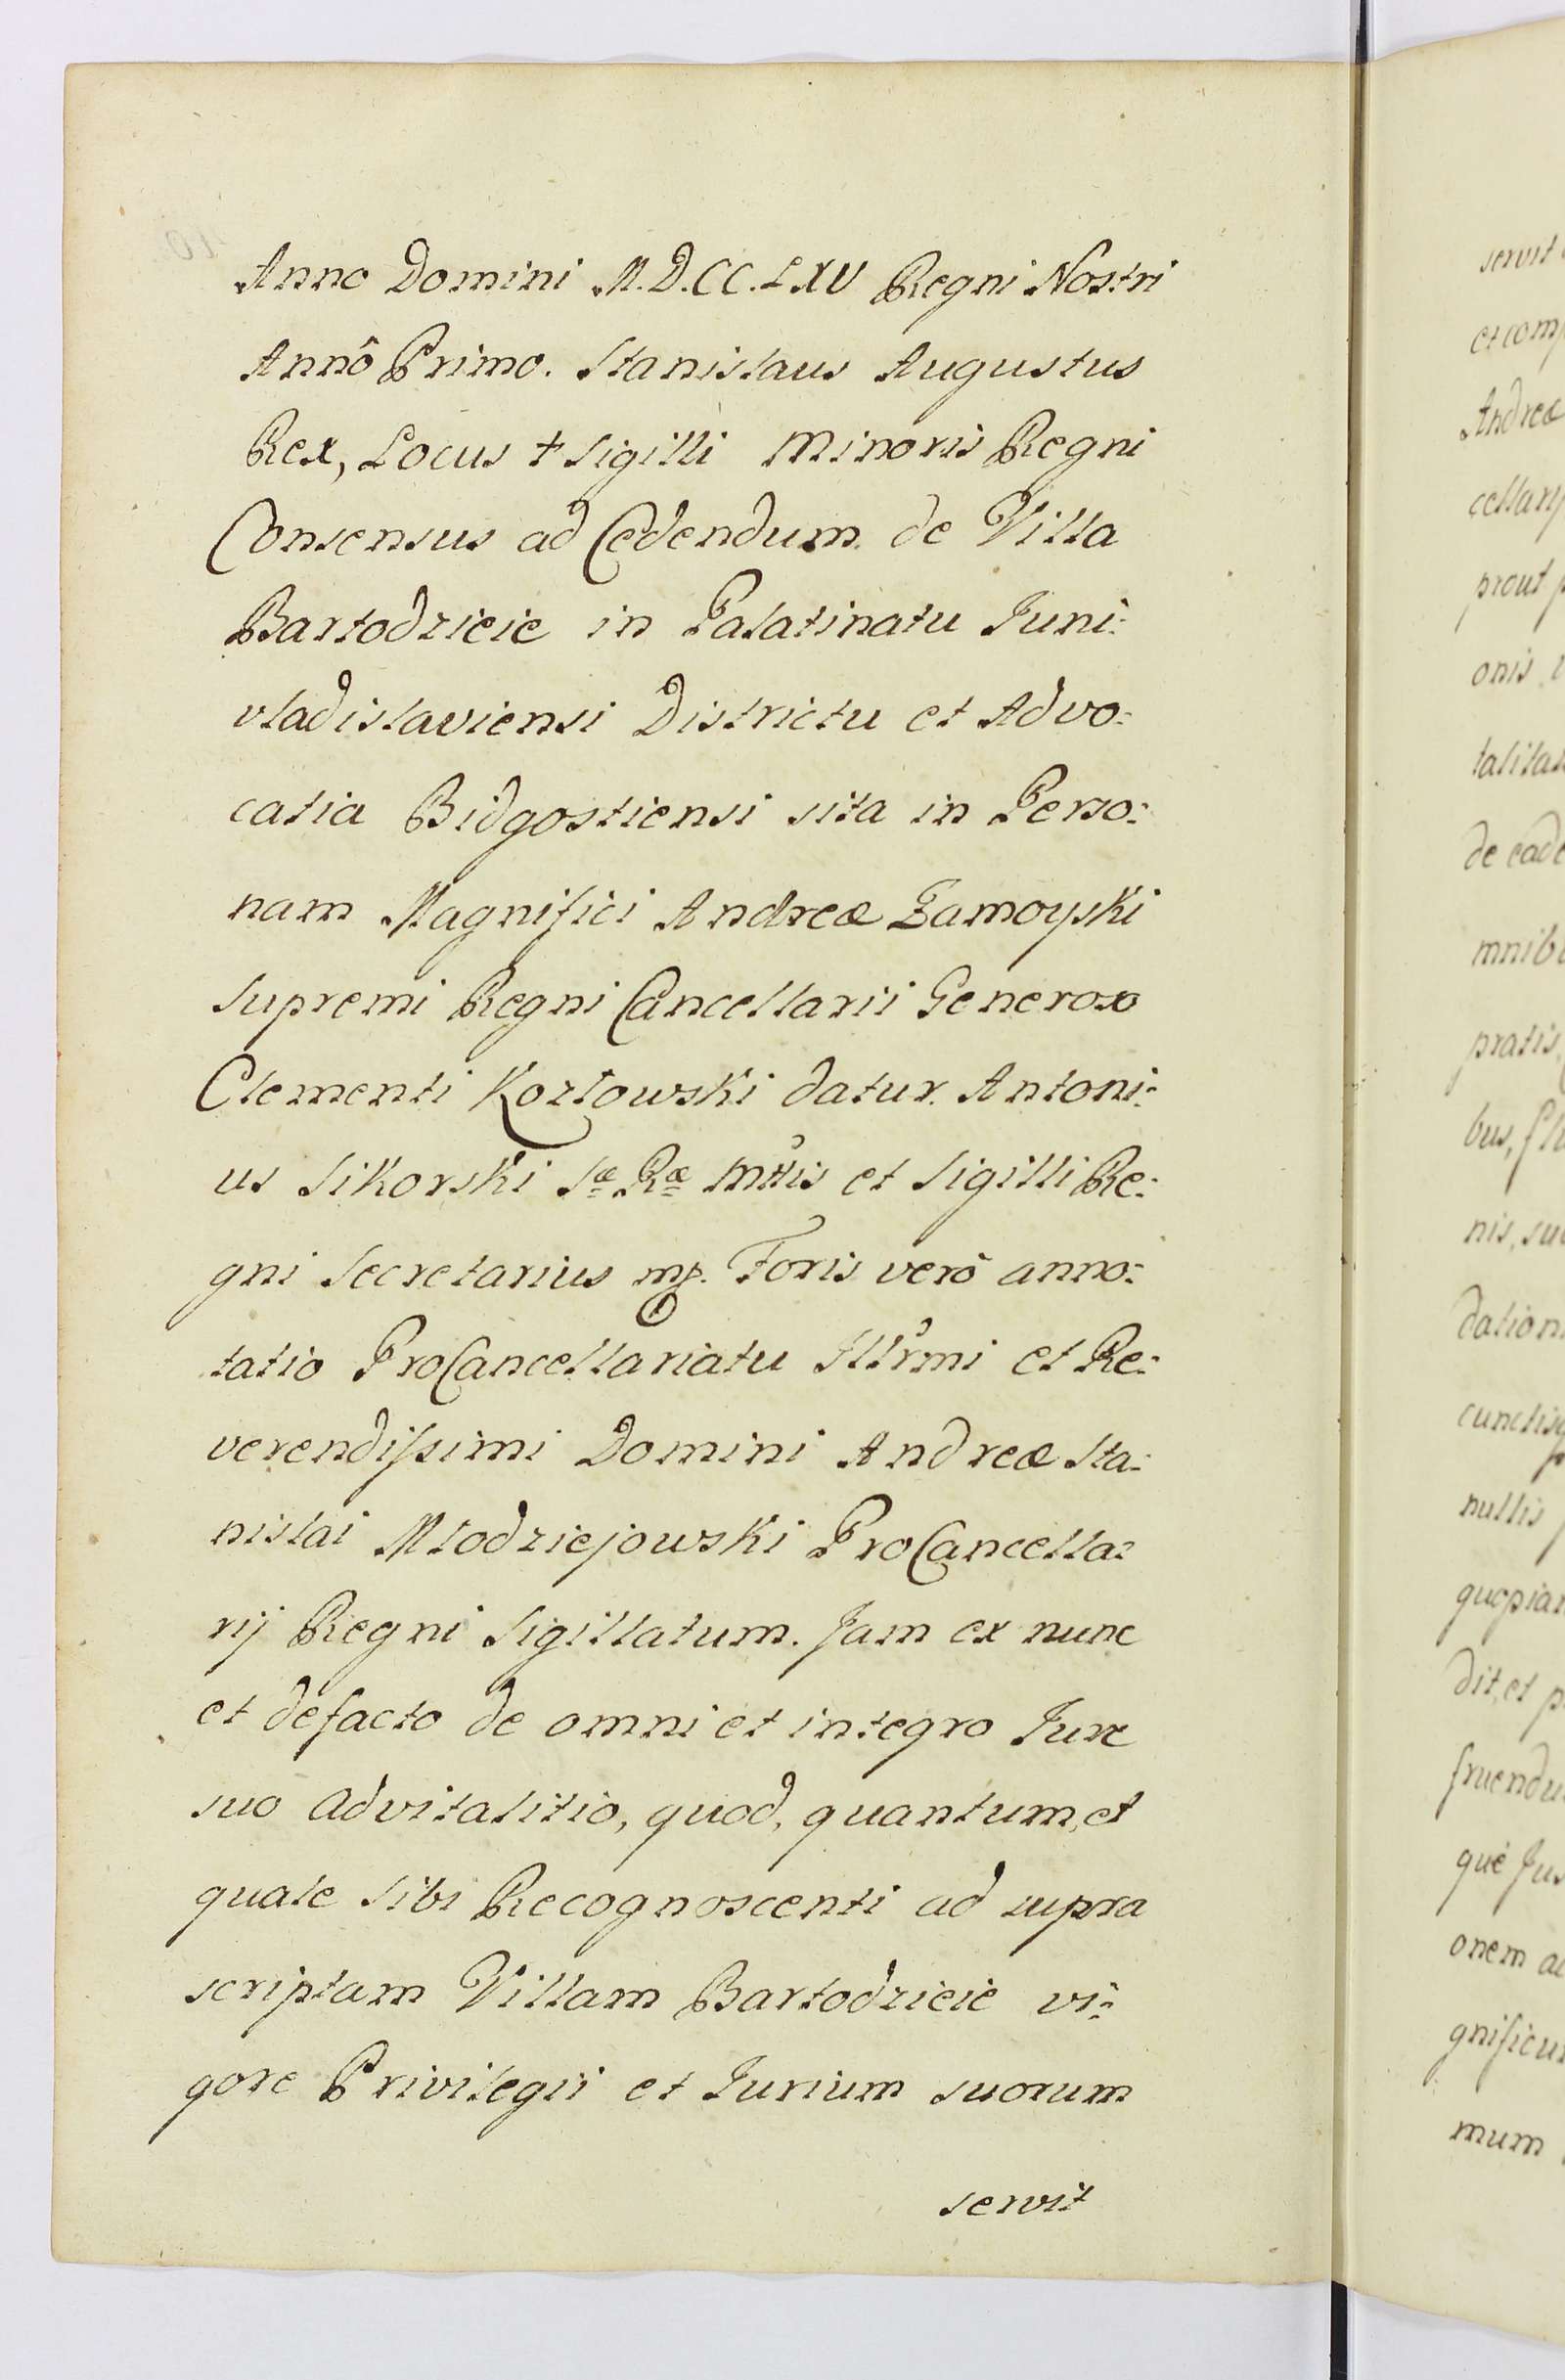 Anno Domini M.D.CC.LXV Regni Nostri
Annô Primo. Stanislaus Augustus
Rex, Locus + Sigilli Minoris Regni
Consensus ad Cedendum de Villa
Bartodzieie in Palatinatu Juni:
vladislaviensi Districtu et Advo:
catia Bidgostiensi sita in Perso:
nam Magnifici Andreæ Zamoyski
Supremi Regni Cancellarii Generoso
Clementi Kozłowski datur. Antoni:
us Sikorski Sæ Ræ Mttis et Sigilli Re:
gni Secretarius mp. Foris verô anno:
tatio ProCancellariatu Illrmi et Re:
verendissimi Domini Andreæ Sta:
nislai Młodziejowski ProCancella:
rij Regni Sigillatum. Jam ex nunc
et defacto de omni et integro Jure
suo advitalitio, quod, quantum, et
quale sibi Recognoscenti ad supra
scriptam Villam Bartodzieie vi:
gore Privilegii et Jurium suorum
servit
servit
et com
Andreæ
cellarij
prout
onis
talitat
de eade
mnib
pratis,
bus, fl
nis, su
dation
cunctisq
nullis
quopiam
dit, et p
fruendu
què Jus
onem a
gnificu
mum